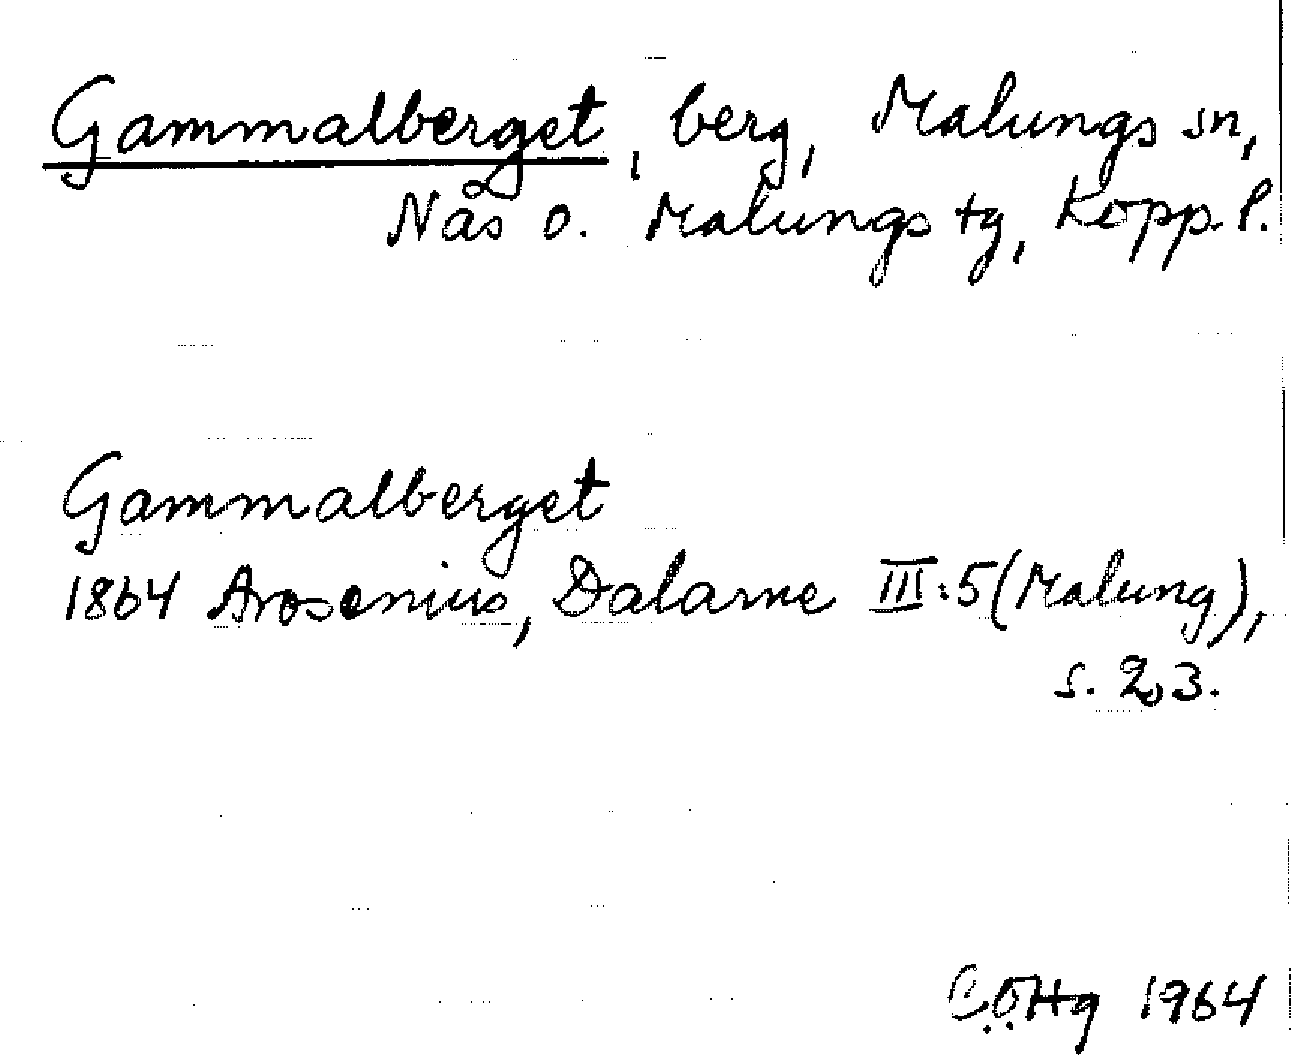 Gammalberget, berg, Malungs sn,
Nås o. Malungs tg, Kopp. l.
Gammalberget
1864 Arosenius, Dalarne III:5 (Malung),
s. 23.
1964